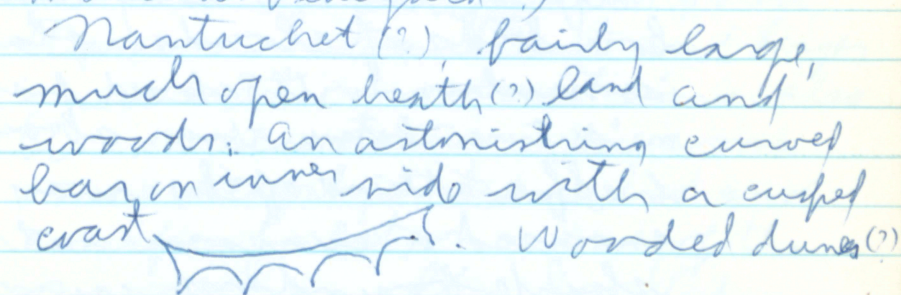 Nantucket (?), fairly large,
much open heath (?) land and
woods. An astonishing curved
bar on inner side with a cusped
coast. Wooded dunes (?)